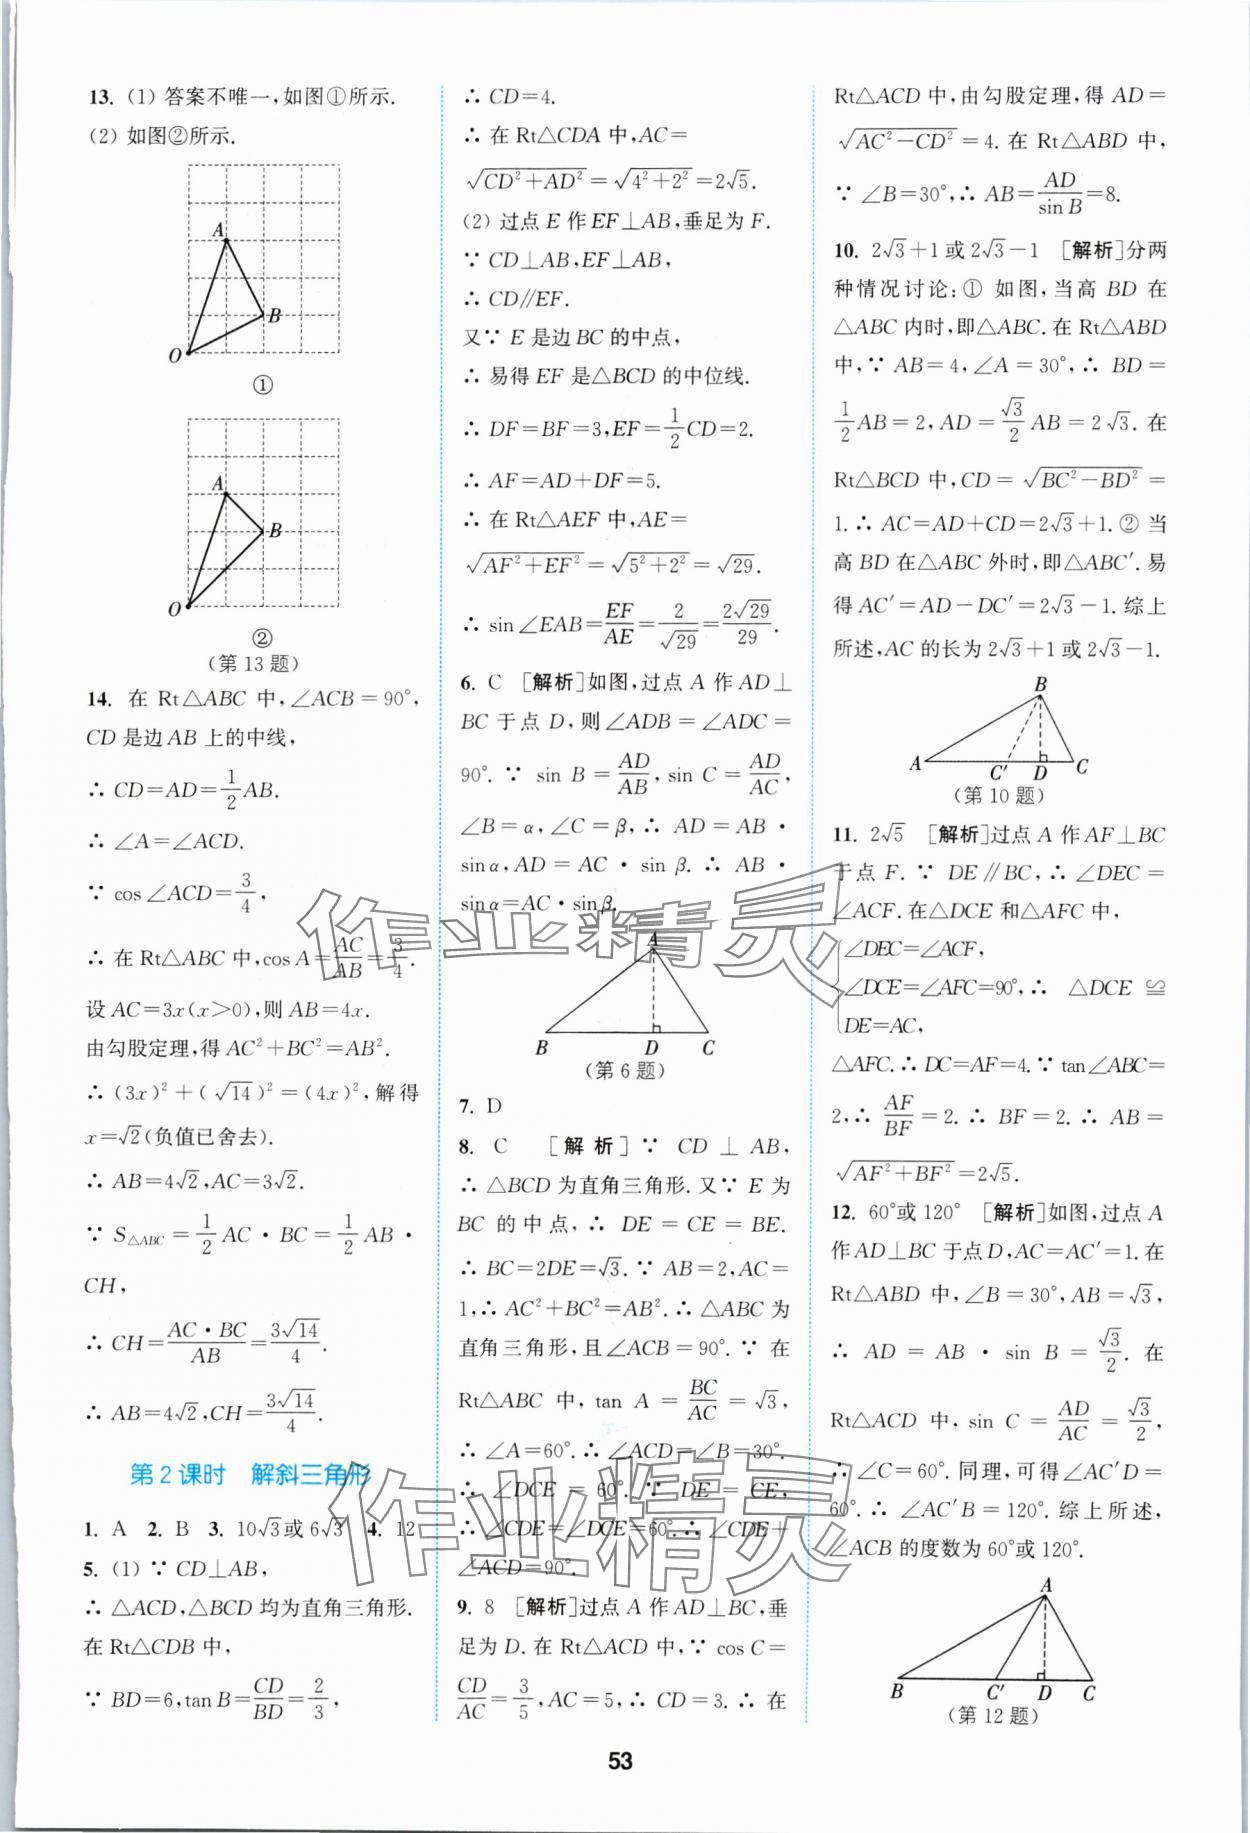 13. (1) 答案不唯一,如图①所示.
(2) 如图②所示.
A
B
O
①
A
B
O
②
(第 13 题)
14. 在 Rt△ABC 中,∠ACB=90°,
CD 是边 AB 上的中线,
∴ CD=AD=1/2AB.
∴ ∠A=∠ACD.
∵ cos∠ACD=3/4,
∴ 在 Rt△ABC 中,cos A=AC/AB=3/4.
设 AC=3x(x>0),则 AB=4x.
由勾股定理,得 AC²+BC²=AB².
∴ (3x)²+(√14)²=(4x)²,解得
x=√2(负值已舍去).
∴ AB=4√2,AC=3√2.
∵ S△ABC=1/2AC·BC=1/2AB·
CH,
∴ CH=AC·BC/AB=3√14/4.
∴ AB=4√2,CH=3√14/4.
第 2 课时 解斜三角形
1. A 2. B 3. 10√3或6√3 4. 12
5. (1) ∵ CD⊥AB,
∴ △ACD,△BCD 均为直角三角形.
在 Rt△CDB 中,
∵ BD=6,tan B=CD/BD=2/3,
∴ CD=4.
∴ 在 Rt△CDA 中,AC=
√(CD²+AD²)=√(4²+2²)=2√5.
(2) 过点 E 作 EF⊥AB,垂足为 F.
∵ CD⊥AB,EF⊥AB,
∴ CD∥EF.
又∵ E 是边 BC 的中点,
∴ 易得 EF 是△BCD 的中位线.
∴ DF=BF=3,EF=1/2CD=2.
∴ AF=AD+DF=5.
∴ 在 Rt△AEF 中,AE=
√(AF²+EF²)=√(5²+2²)=√29.
∴ sin∠EAB=EF/AE=2/√29=2√29/29.
6. C [解析]如图,过点 A 作 AD⊥
BC 于点 D,则∠ADB=∠ADC=
90°. ∵ sin B=AD/AB,sin C=AD/AC,
∠B=α,∠C=β,∴ AD=AB·
sin α,AD=AC·sin β. ∴ AB·
sin α=AC·sin β.
A
B D C
(第 6 题)
7. D
8. C [解析]∵ CD⊥AB,
∴ △BCD 为直角三角形.又∵ E 为
BC 的中点,∴ DE=CE=BE.
∴ BC=2DE=√3. ∵ AB=2,AC=
1,∴ AC²+BC²=AB². ∴ △ABC 为
直角三角形,且∠ACB=90°. ∵ 在
Rt△ABC 中,tan A=BC/AC=√3,
∴ ∠A=60°. ∴ ∠ACD=∠B=30°.
∴ ∠DCE=60°. ∵ DE=CE,
∴ ∠CDE=∠DCE=60°. ∴ ∠CDE+
∠ACD=90°.
9. 8 [解析]过点 A 作AD⊥BC,垂
足为 D. 在 Rt△ACD 中,∵ cos C=
CD/AC=3/5,AC=5,∴ CD=3. ∴ 在
Rt△ACD 中,由勾股定理,得 AD=
√(AC²-CD²)=4. 在 Rt△ABD 中,
∵ ∠B=30°,∴ AB=AD/sin B=8.
10. 2√3+1或2√3-1 [解析]分两
种情况讨论:① 如图,当高 BD 在
△ABC 内时,即△ABC. 在 Rt△ABD
中,∵ AB=4,∠A=30°,∴ BD=
1/2AB=2,AD=√3/2AB=2√3. 在
Rt△BCD 中,CD=√(BC²-BD²)=
1. ∴ AC=AD+CD=2√3+1. ② 当
高 BD 在△ABC 外时,即△ABC′. 易
得 AC′=AD-DC′=2√3-1. 综上
所述,AC 的长为 2√3+1 或 2√3-1.
B
A C′ D C
(第 10 题)
11. 2√5 [解析]过点 A 作 AF⊥BC
于点 F. ∵ DE∥BC,∴ ∠DEC=
∠ACF. 在△DCE 和△AFC 中,
∠DEC=∠ACF,
∠DCE=∠AFC=90°,∴ △DCE≌
DE=AC,
△AFC. ∴ DC=AF=4. ∵ tan∠ABC=
2,∴ AF/BF=2. ∴ BF=2. ∴ AB=
√(AF²+BF²)=2√5.
12. 60°或120° [解析]如图,过点 A
作AD⊥BC 于点 D,AC=AC′=1. 在
Rt△ABD 中,∠B=30°,AB=√3,
∴ AD=AB·sin B=√3/2. 在
Rt△ACD 中,sin C=AD/AC=√3/2,
∴ ∠C=60°. 同理,可得∠AC′D=
60°. ∴ ∠AC′B=120°. 综上所述,
∠ACB 的度数为 60°或 120°.
A
B C′ D C
(第 12 题)
53
作业精灵
作业精灵